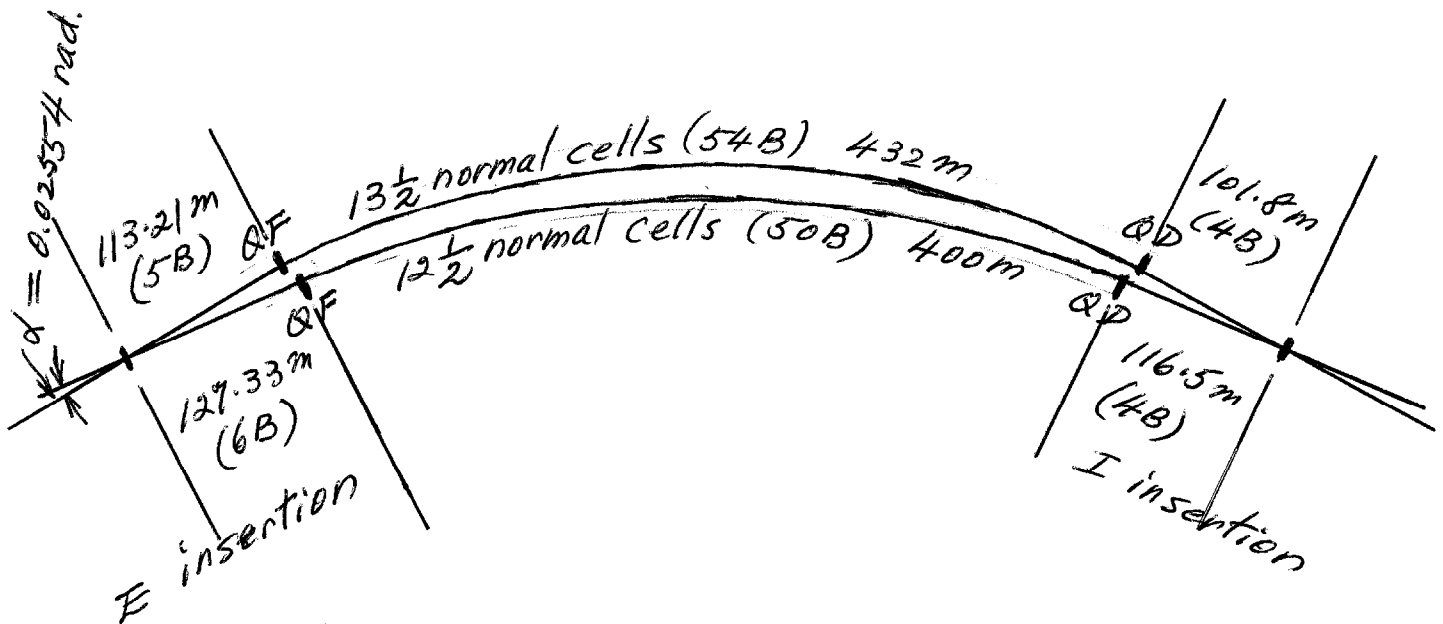 α = 0.02554 rad.
113.21m
(5B)
QF
13 1/2 normal cells (54B) 432m
QD
101.8m
(4B)
QF
12 1/2 normal cells (50B) 400m
QD
127.33m
(6B)
116.5m
(4B)
E insertion
I insertion